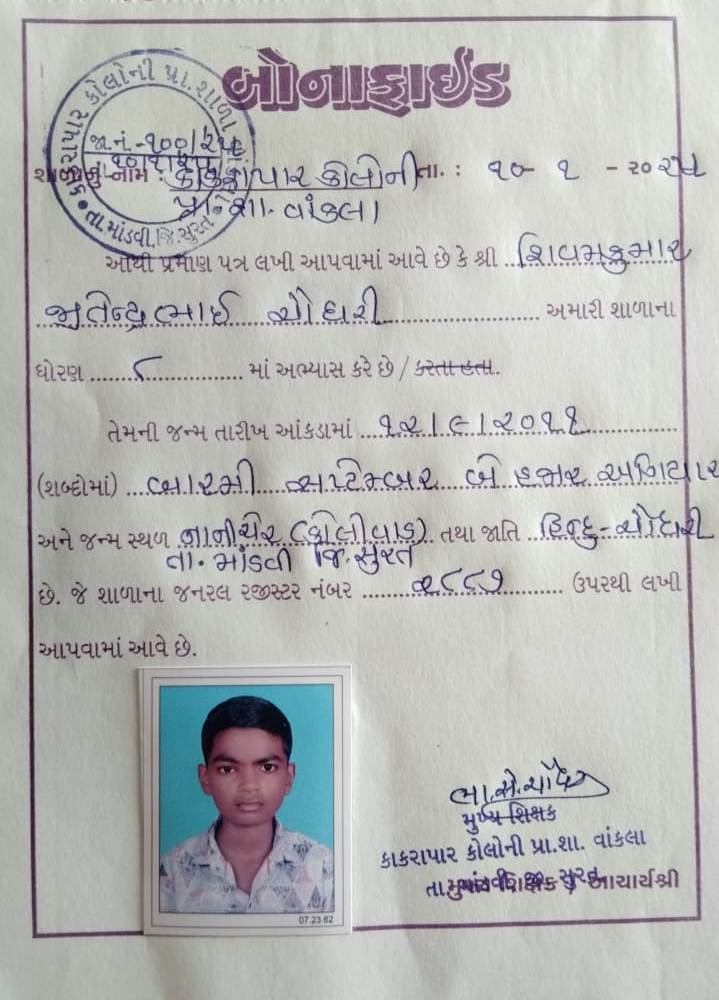 બોનાફાઈડ
કાકરાપાર કોલોની પ્રા. શાળા
જા.નં.-૧૦૦/૨૫
તા. માંડવી, જિ. સુરત
શાળાનું નામ : કાકરાપાર કોલોની તા. : ૧૦ - ૧ - ૨૦૨૫
પ્રા. શા. વાંકલા
આથી પ્રમાણ પત્ર લખી આપવામાં આવે છે કે શ્રી શિવમકુમાર
જીતેન્દ્રભાઈ ચૌધરી અમારી શાળાના
ધોરણ ૮ માં અભ્યાસ કરે છે / કરતા હતા.
તેમની જન્મ તારીખ આંકડામાં ૧૨/૯/૨૦૧૧
(શબ્દોમાં) બારમી સપ્ટેમ્બર બે હજાર અગિયાર
અને જન્મ સ્થળ નાનીચેર (કોલીવાડ) તથા જાતિ હિન્દુ-ચૌધરી
તા. માંડવી જિ. સુરત
છે. જે શાળાના જનરલ રજીસ્ટર નંબર ઉપરથી લખી
આપવામાં આવે છે.
07.23.62
મુખ્ય શિક્ષક
કાકરાપાર કોલોની પ્રા.શા. વાંકલા
તા. માંડવી જિ. સુરત
મુખ્ય શિક્ષક / આચાર્યશ્રી